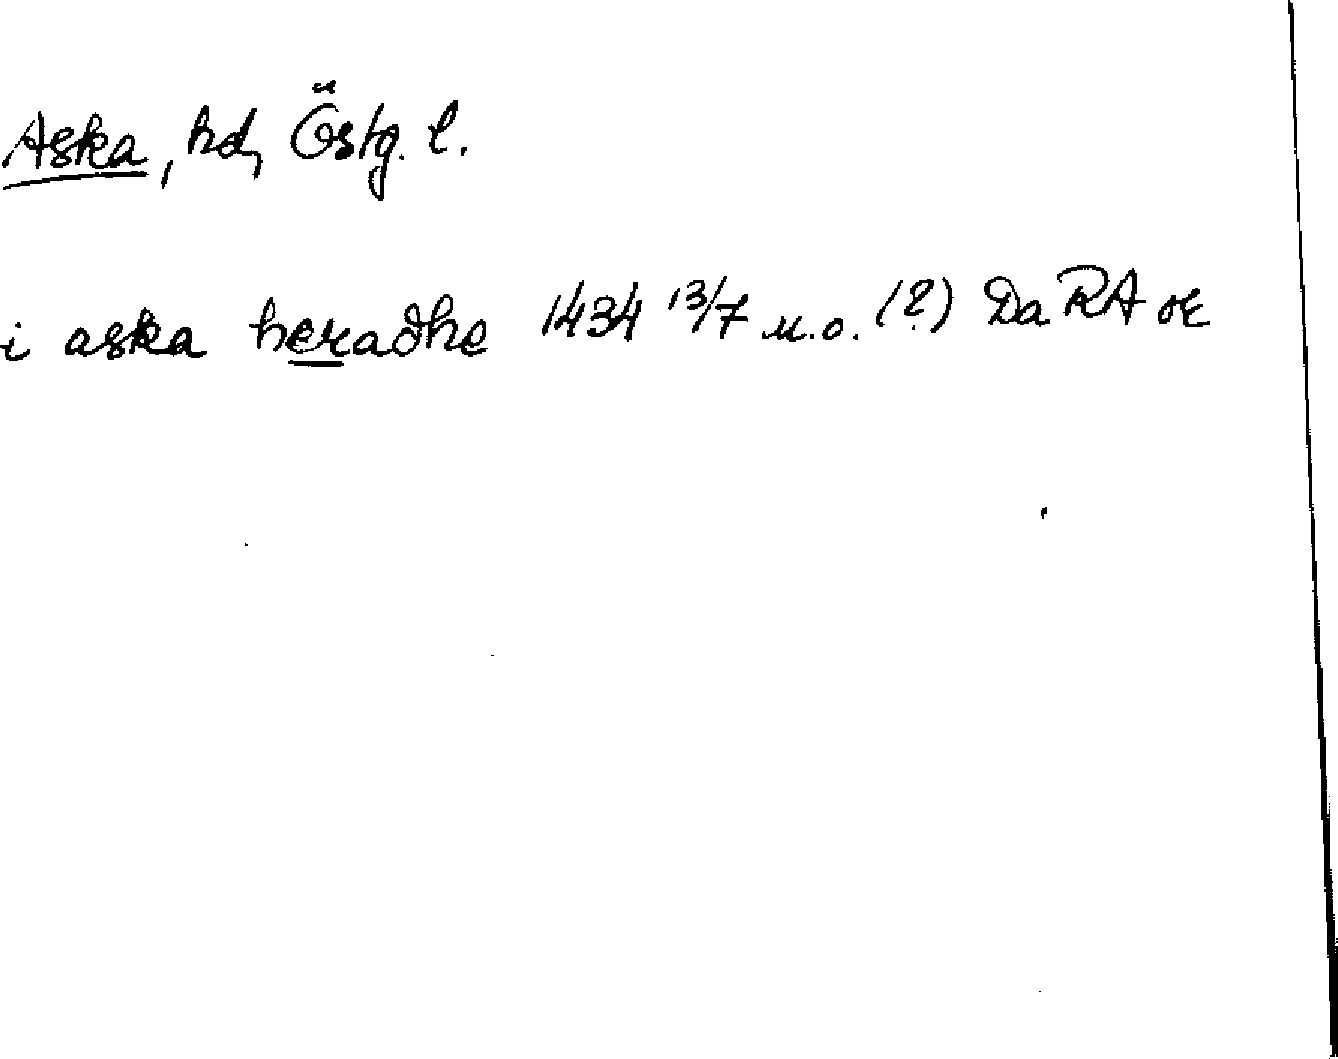 Aska, hd, Östg. l.
i aska heradhe 1434 13/7 u.o. (?) Da RA or